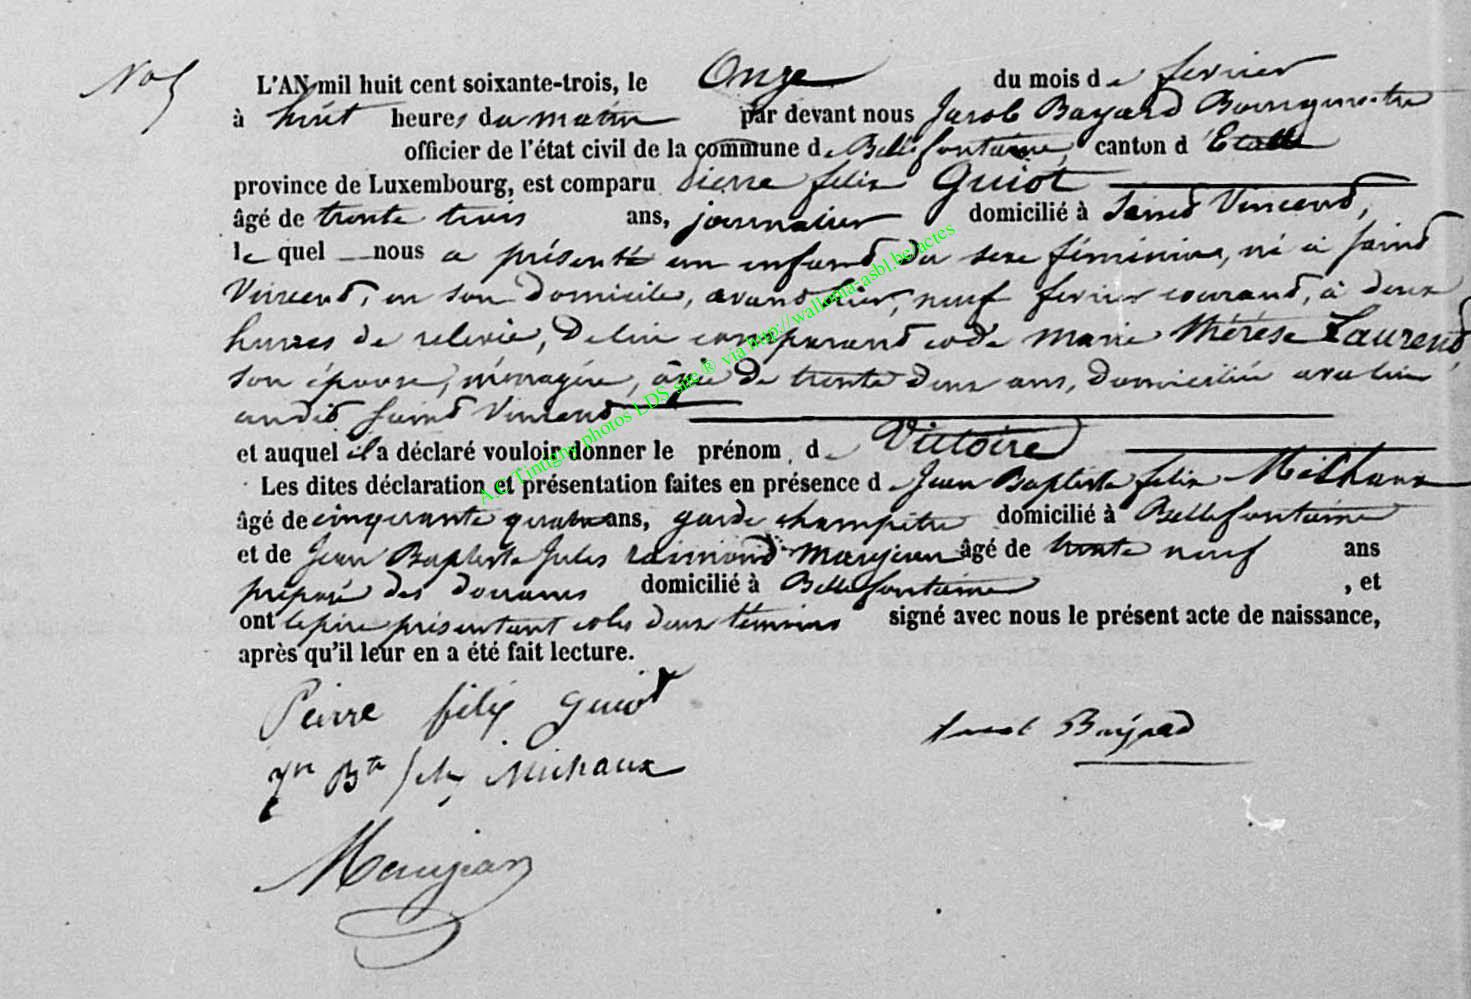 No 5
L'AN mil huit cent soixante-trois, le Onze du mois de fevrier
à huit heures du matin par devant nous Jacob Bayard Bourgmestre
officier de l'état civil de la commune de Bellefontaine, canton d'Etalle
province de Luxembourg, est comparu Pierre felix Guiot
âgé de trente trois ans, journalier domicilié à Saind Vincend,
lequel nous a présenté un enfand du sexe féminin, né à Saind
Vincend, en son domicile, avand hier, neuf fevrier courand, à deux
heures de relevée, de lui comparand et de marie thérèse Laurend,
son épouse, ménagère, âgée de trente deux ans, domiciliée avec lui
audit Saind Vincend
et auquel il a déclaré vouloir donner le prénom de Victoire
Les dites déclaration et présentation faites en présence de Jean Baptiste felix Michaux
âgé de cinquante quatre ans, garde champêtre domicilié à Bellefontaine
et de Jean Baptiste Jules raimond Maujean âgé de trente neuf ans
préposé des douanes domicilié à Bellefontaine, et
ont le père présentant et les deux témoins signé avec nous le présent acte de naissance,
après qu'il leur en a été fait lecture.
Peirre félix guiot
Jacob Bayard
Jn Bte felix Michaux
Maujean
A.C Tintigny photos LDS site ® via http://wallonia-asbl.be/actes